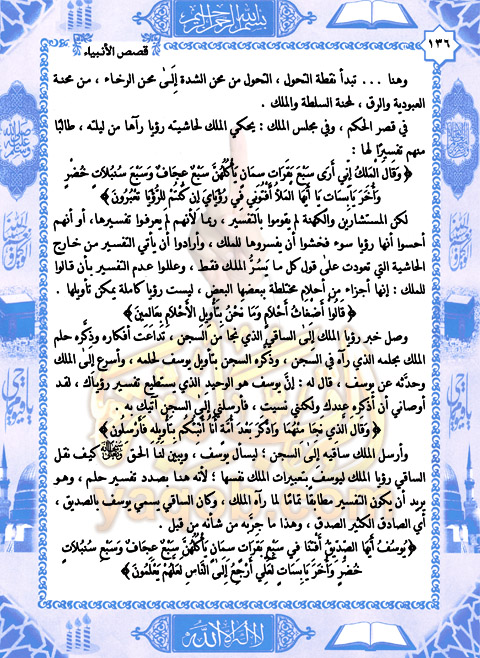 بسم الله الرحمن الرحيم
قصص الأنبياء
١٣٦
وهنا ... تبدأ نقطة التحول ، التحول من محن الشدة إلى محن الرخاء ، من محنة
العبودية والرق ، لمحنة السلطة والملك .
في قصر الحكم ، وفي مجلس الملك : يحكي الملك لحاشيته رؤيا رآها من ليلته ، طالبًا
منهم تفسيرًا لها :
﴿ وَقَالَ الْمَلِكُ إِنِّي أَرَى سَبْعَ بَقَرَاتٍ سِمَانٍ يَأْكُلُهُنَّ سَبْعٌ عِجَافٌ وَسَبْعَ سُنْبُلَاتٍ خُضْرٍ
وَأُخَرَ يَابِسَاتٍ يَا أَيُّهَا الْمَلَأُ أَفْتُونِي فِي رُؤْيَايَ إِنْ كُنْتُمْ لِلرُّؤْيَا تَعْبُرُونَ ﴾
لكن المستشارين والكهنة لم يقوموا بالتفسير ، ربما لأنهم لم يعرفوا تفسيرها، أو أنهم
أحسوا أنها رؤيا سوء فخشوا أن يفسروها للملك ، وأرادوا أن يأتي التفسير من خارج
الحاشية التي تعودت على قول كل ما يَسُرُّ الملك فقط ، وعللوا عدم التفسير بأن قالوا
للملك : إنها أجزاء من أحلام مختلطة ببعضها البعض ، ليست رؤيا كاملة يمكن تأويلها .
﴿ قَالُوا أَضْغَاثُ أَحْلَامٍ وَمَا نَحْنُ بِتَأْوِيلِ الْأَحْلَامِ بِعَالِمِينَ ﴾
وصل خبر رؤيا الملك إلى الساقي الذي نجا من السجن ، تَدَاعَت أفكاره وذكَّره حلم
الملك بحلمه الذي رآه في السجن ، وذكَّره السجن بتأويل يوسف لحلمه ، وأسرع إلى الملك
وحدَّثه عن يوسف ، قال له : إنَّ يوسف هو الوحيد الذي يستطيع تفسير رؤياك ، لقد
أوصاني أن أذكره عندك ولكني نسيت ، فأرسلني إلى السجن آتيك به .
﴿ وَقَالَ الَّذِي نَجَا مِنْهُمَا وَادَّكَرَ بَعْدَ أُمَّةٍ أَنَا أُنَبِّئُكُمْ بِتَأْوِيلِهِ فَأَرْسِلُونِ ﴾
وأرسل الملك ساقيه إلى السجن ؛ ليسأل يوسف ، ويبين لنا الحق ﷻ كيف نقل
الساقي رؤيا الملك ليوسف بتعبيرات الملك نفسها ؛ لأنه هنا بصدد تفسير حلم ، وهو
يريد أن يكون التفسير مطابقًا تمامًا لما رآه الملك ، وكان الساقي يسمي يوسف بالصديق ،
أي الصادق الكثير الصدق ، وهذا ما جربه من شأنه من قبل .
﴿يُوسُفُ أَيُّهَا الصِّدِّيقُ أَفْتِنَا فِي سَبْعِ بَقَرَاتٍ سِمَانٍ يَأْكُلُهُنَّ سَبْعٌ عِجَافٌ وَسَبْعِ سُنْبُلَاتٍ
خُضْرٍ وَأُخَرَ يَابِسَاتٍ لَعَلِّي أَرْجِعُ إِلَى النَّاسِ لَعَلَّهُمْ يَعْلَمُونَ ﴾
لا إله إلا الله